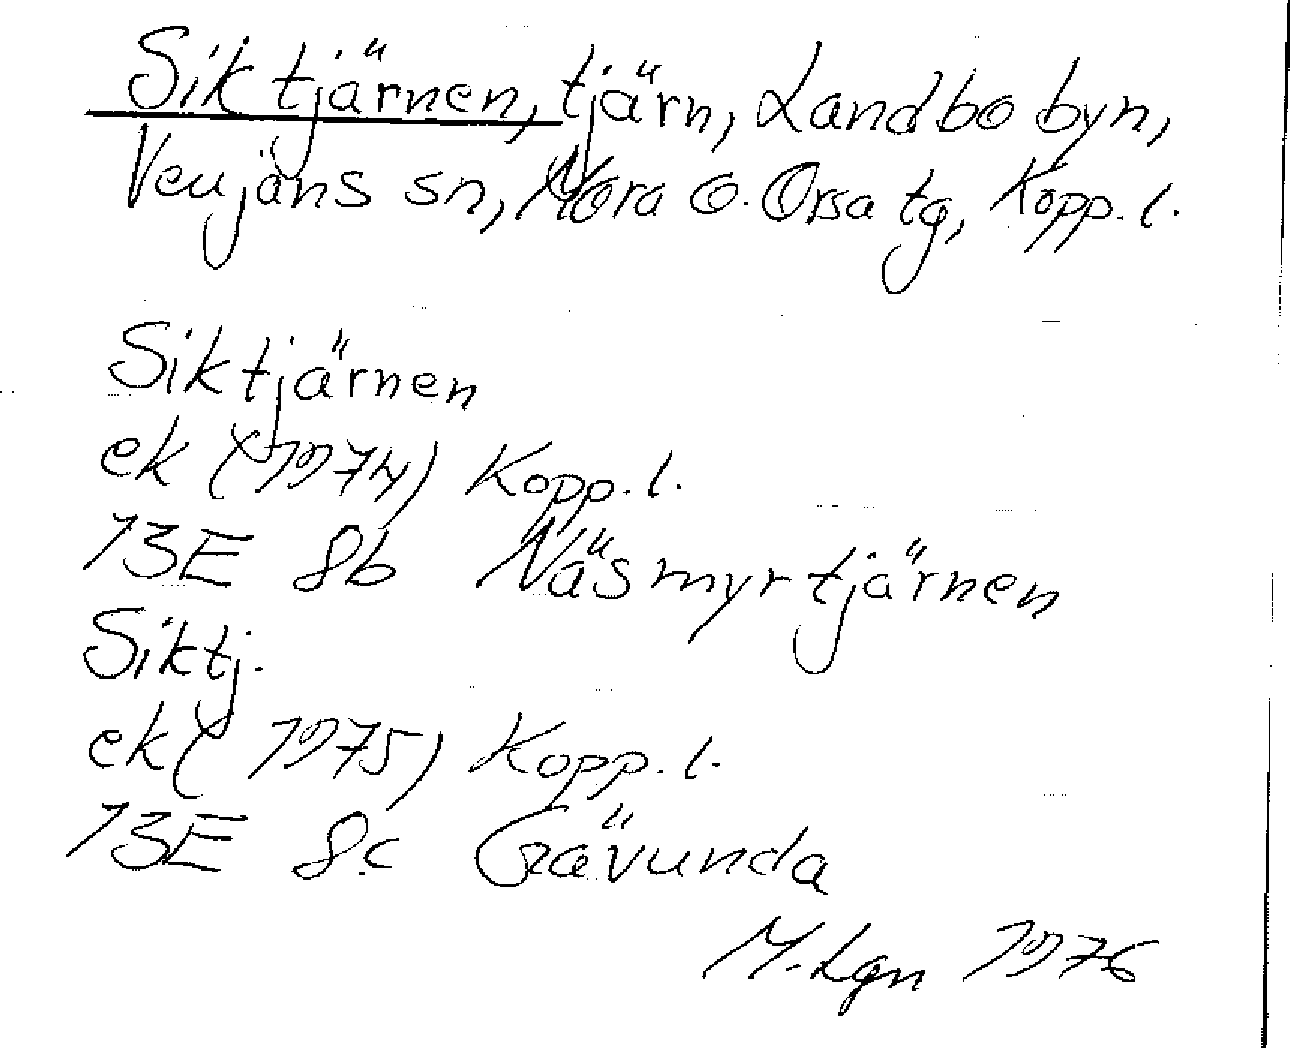 Siktjärnen, tjärn, Landbobyn,
Venjäns sn, Mora o. Orsa tg, Kopp. l.
Siktjärnen
ek (1974) Kopp. l.
13E 8b Näsmyrtjärnen
Siktj.
ek (1975) Kopp. l.
13E 8c Gävunda
M. Lgn 1976